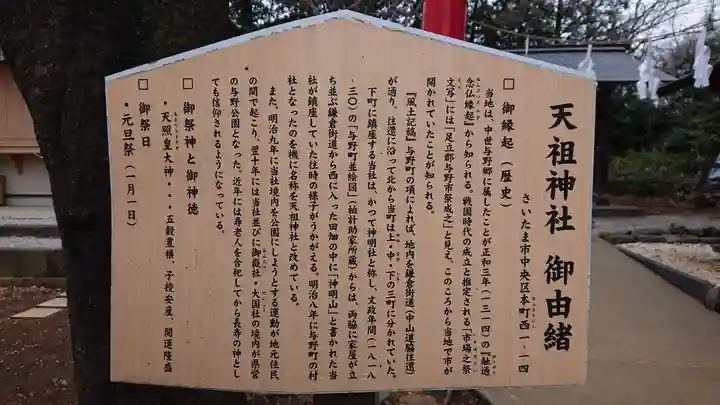 天祖神社 御由緒
さいたま市中央区本町西一-一四
□ 御縁起（歴史）
当地は、中世与野郷に属したことが正和三年（一三一四）の『融通
念仏縁起』から知られる。戦国時代の成立と推定される「市場之祭
文写」には「足立郡与野市祭成之」と見え、このころから当地で市が
開かれていたことが知られる。
『風土記稿』与野町の項によれば、地内を鎌倉街道（中山道脇往還）
が通り、往還に沿って北から当町は上・中・下の三町に分かれていた。
下町に鎮座する当社は、かつて神明社と称し、文政年間（一八一八
～三〇）の「与野町並絵図」（祐計助家所蔵）からは、両脇に家屋が立
ち並ぶ鎌倉街道から西に入った田畑の中に「神明山」と書かれた当
社が鎮座していた往時の様子がうかがえる。明治八年に与野町の村
社となったのを機に名称を天祖神社と改めている。
また、明治九年に当社境内を公園にしようとする運動が地元住民
の間で起こり、翌十年には当社並びに御嶽社・大国社の境内が県営
の与野公園となった。近年には寿老人をを合祀してから長寿の神とし
ても信仰されるようになっている。
□ 御祭神と御神徳
・天照皇大神・・・五穀豊穣、子授安産、開運隆盛
□ 御祭日
・元旦祭（一月一日）